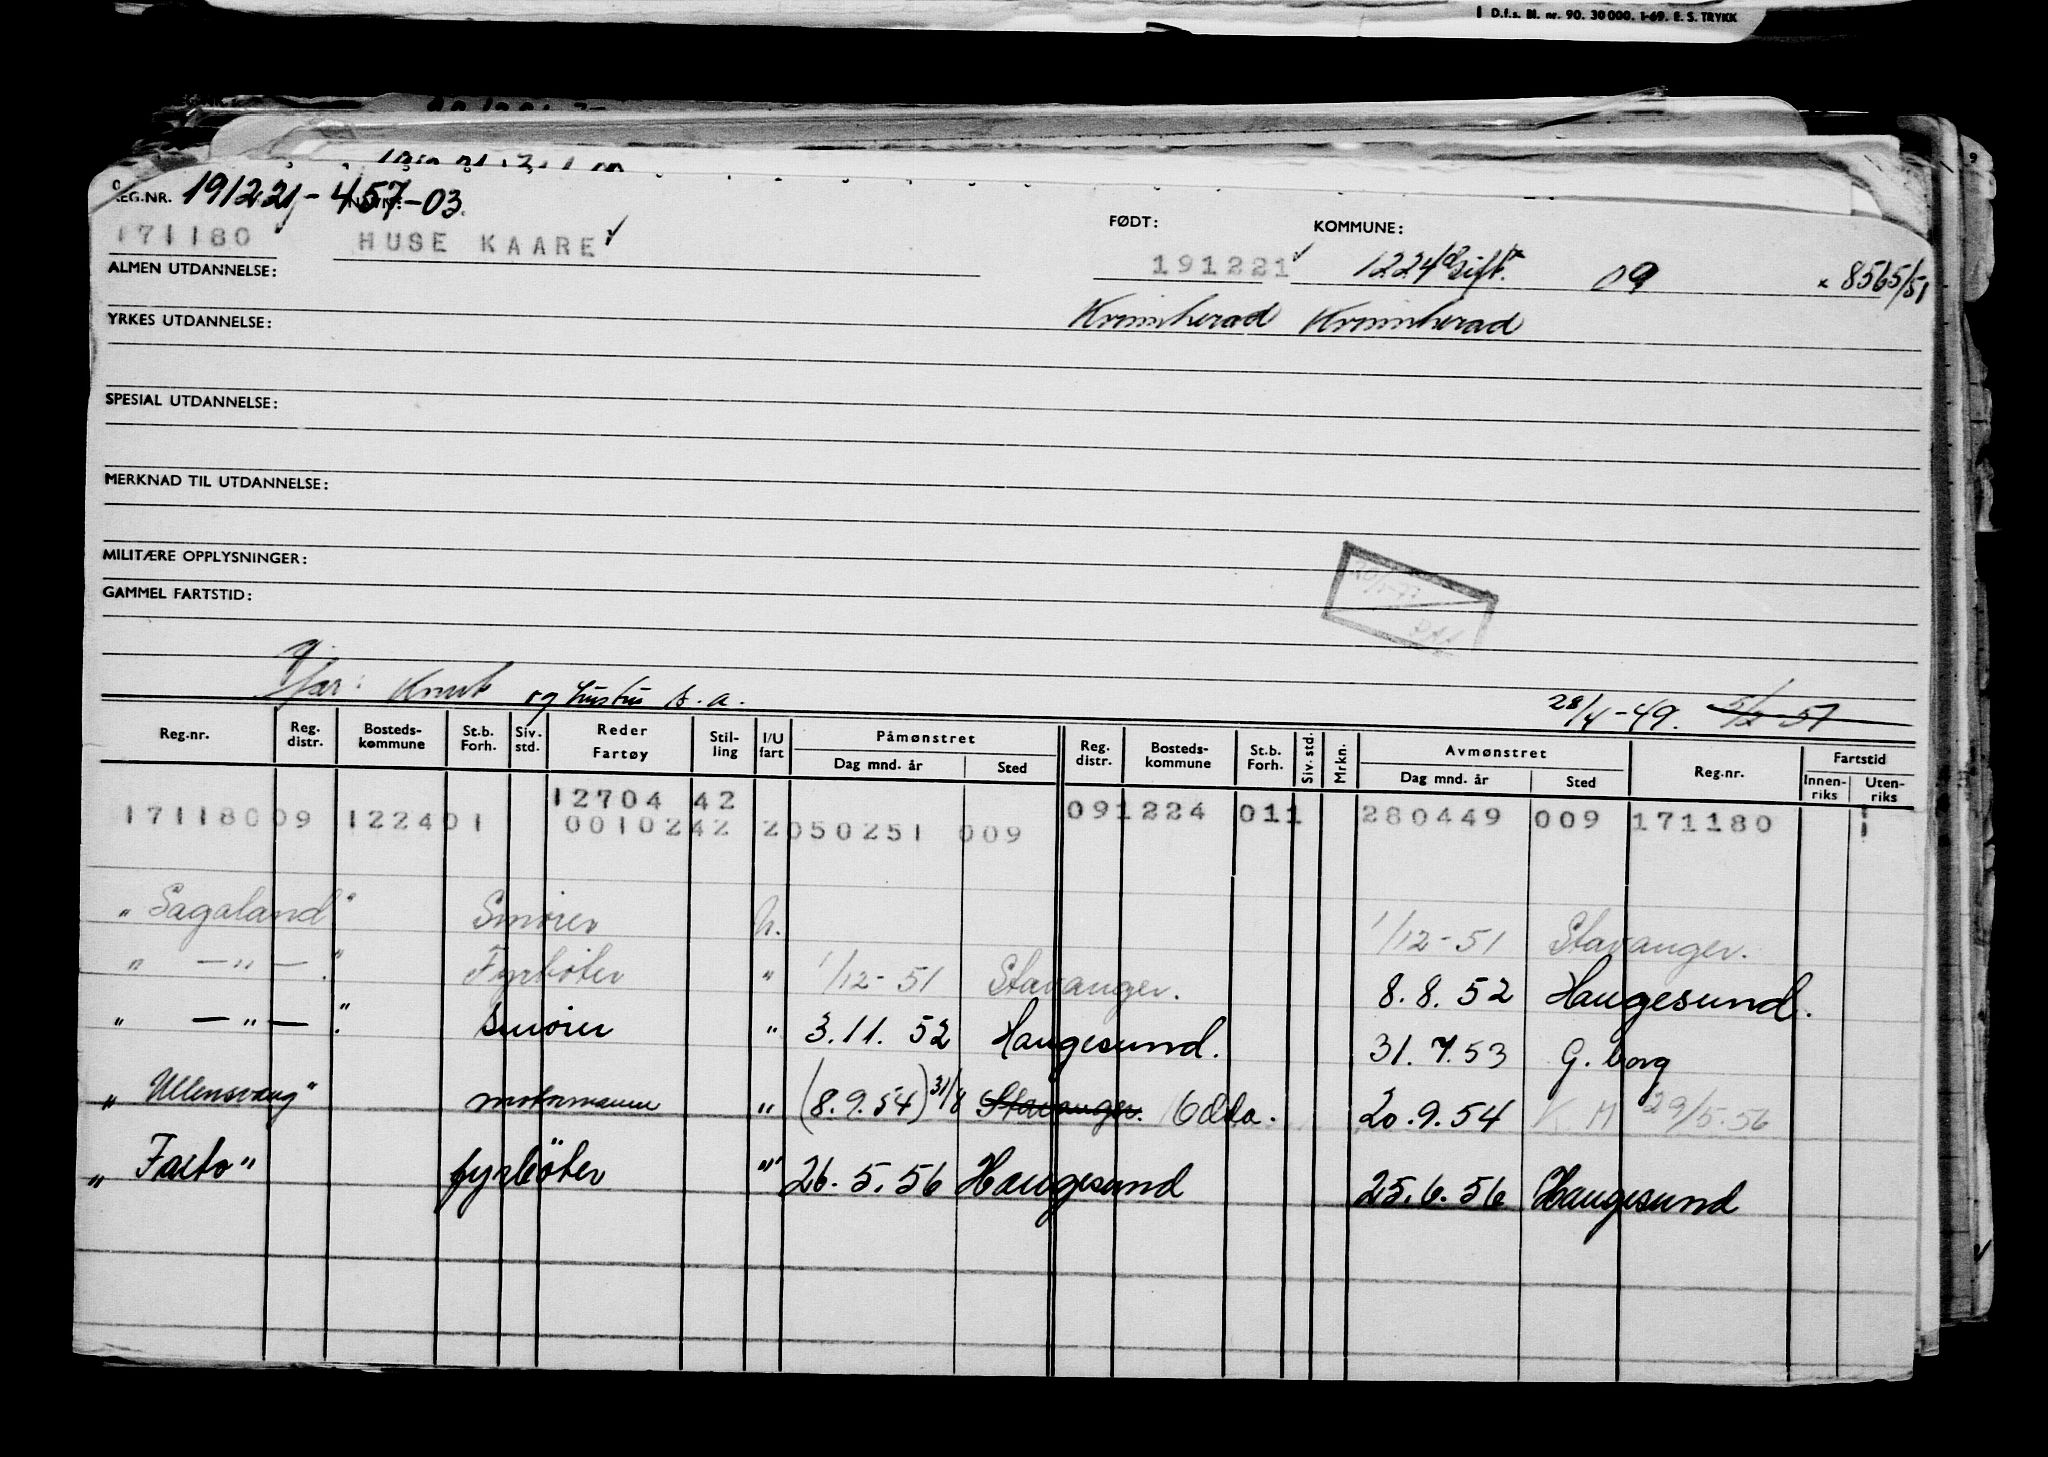 D.f.s. Bl. nr. 90. 30 000. 1-69. E. S. TRYKK
191221-457-03.
REG.NR. NAVN: FØDT: KOMMUNE:
171180 HUSE KAARE 191221 1224 gift. 09 × 8565/51
ALMEN UTDANNELSE:
Kvinnherad Kvinnherad
YRKES UTDANNELSE:
SPESIAL UTDANNELSE:
MERKNAD TIL UTDANNELSE:
MILITÆRE OPPLYSNINGER:
GAMMEL FARTSTID:
Far: Knut og hustru s. a. 28/4-49. 5/2-51
Reg.nr. Reg. distr. Bosteds-kommune St.b. Forh. Siv. std. Reder Fartøy Stil-ling I/U fart Påmønstret Dag mnd. år Sted Reg. distr. Bosteds-kommune St.b. Forh. Siv. std. Mrkn. Avmønstret Dag mnd. år Sted Reg.nr. Fartstid Innen-riks Uten-riks
12704 42
171180 09 1224 01 00102 42 2 050251 009 09 1224 011 280449 009 171180
"Sagaland" Smører u. 1/12-51 Stavanger.
" — " — " Fyrbøter " 1/12-51 Stavanger. 8.8.52 Haugesund.
" — " — " Smører " 3.11.52 Haugesund. 31.7.53 G.borg
"Ullensvang" motormann " (8.9.54) 31/8 Stavanger. Odda. 20.9.54 K.M 29/5.56
"Fasto" fyrbøter " 26.5.56 Haugesund 25.6.56 Haugesund